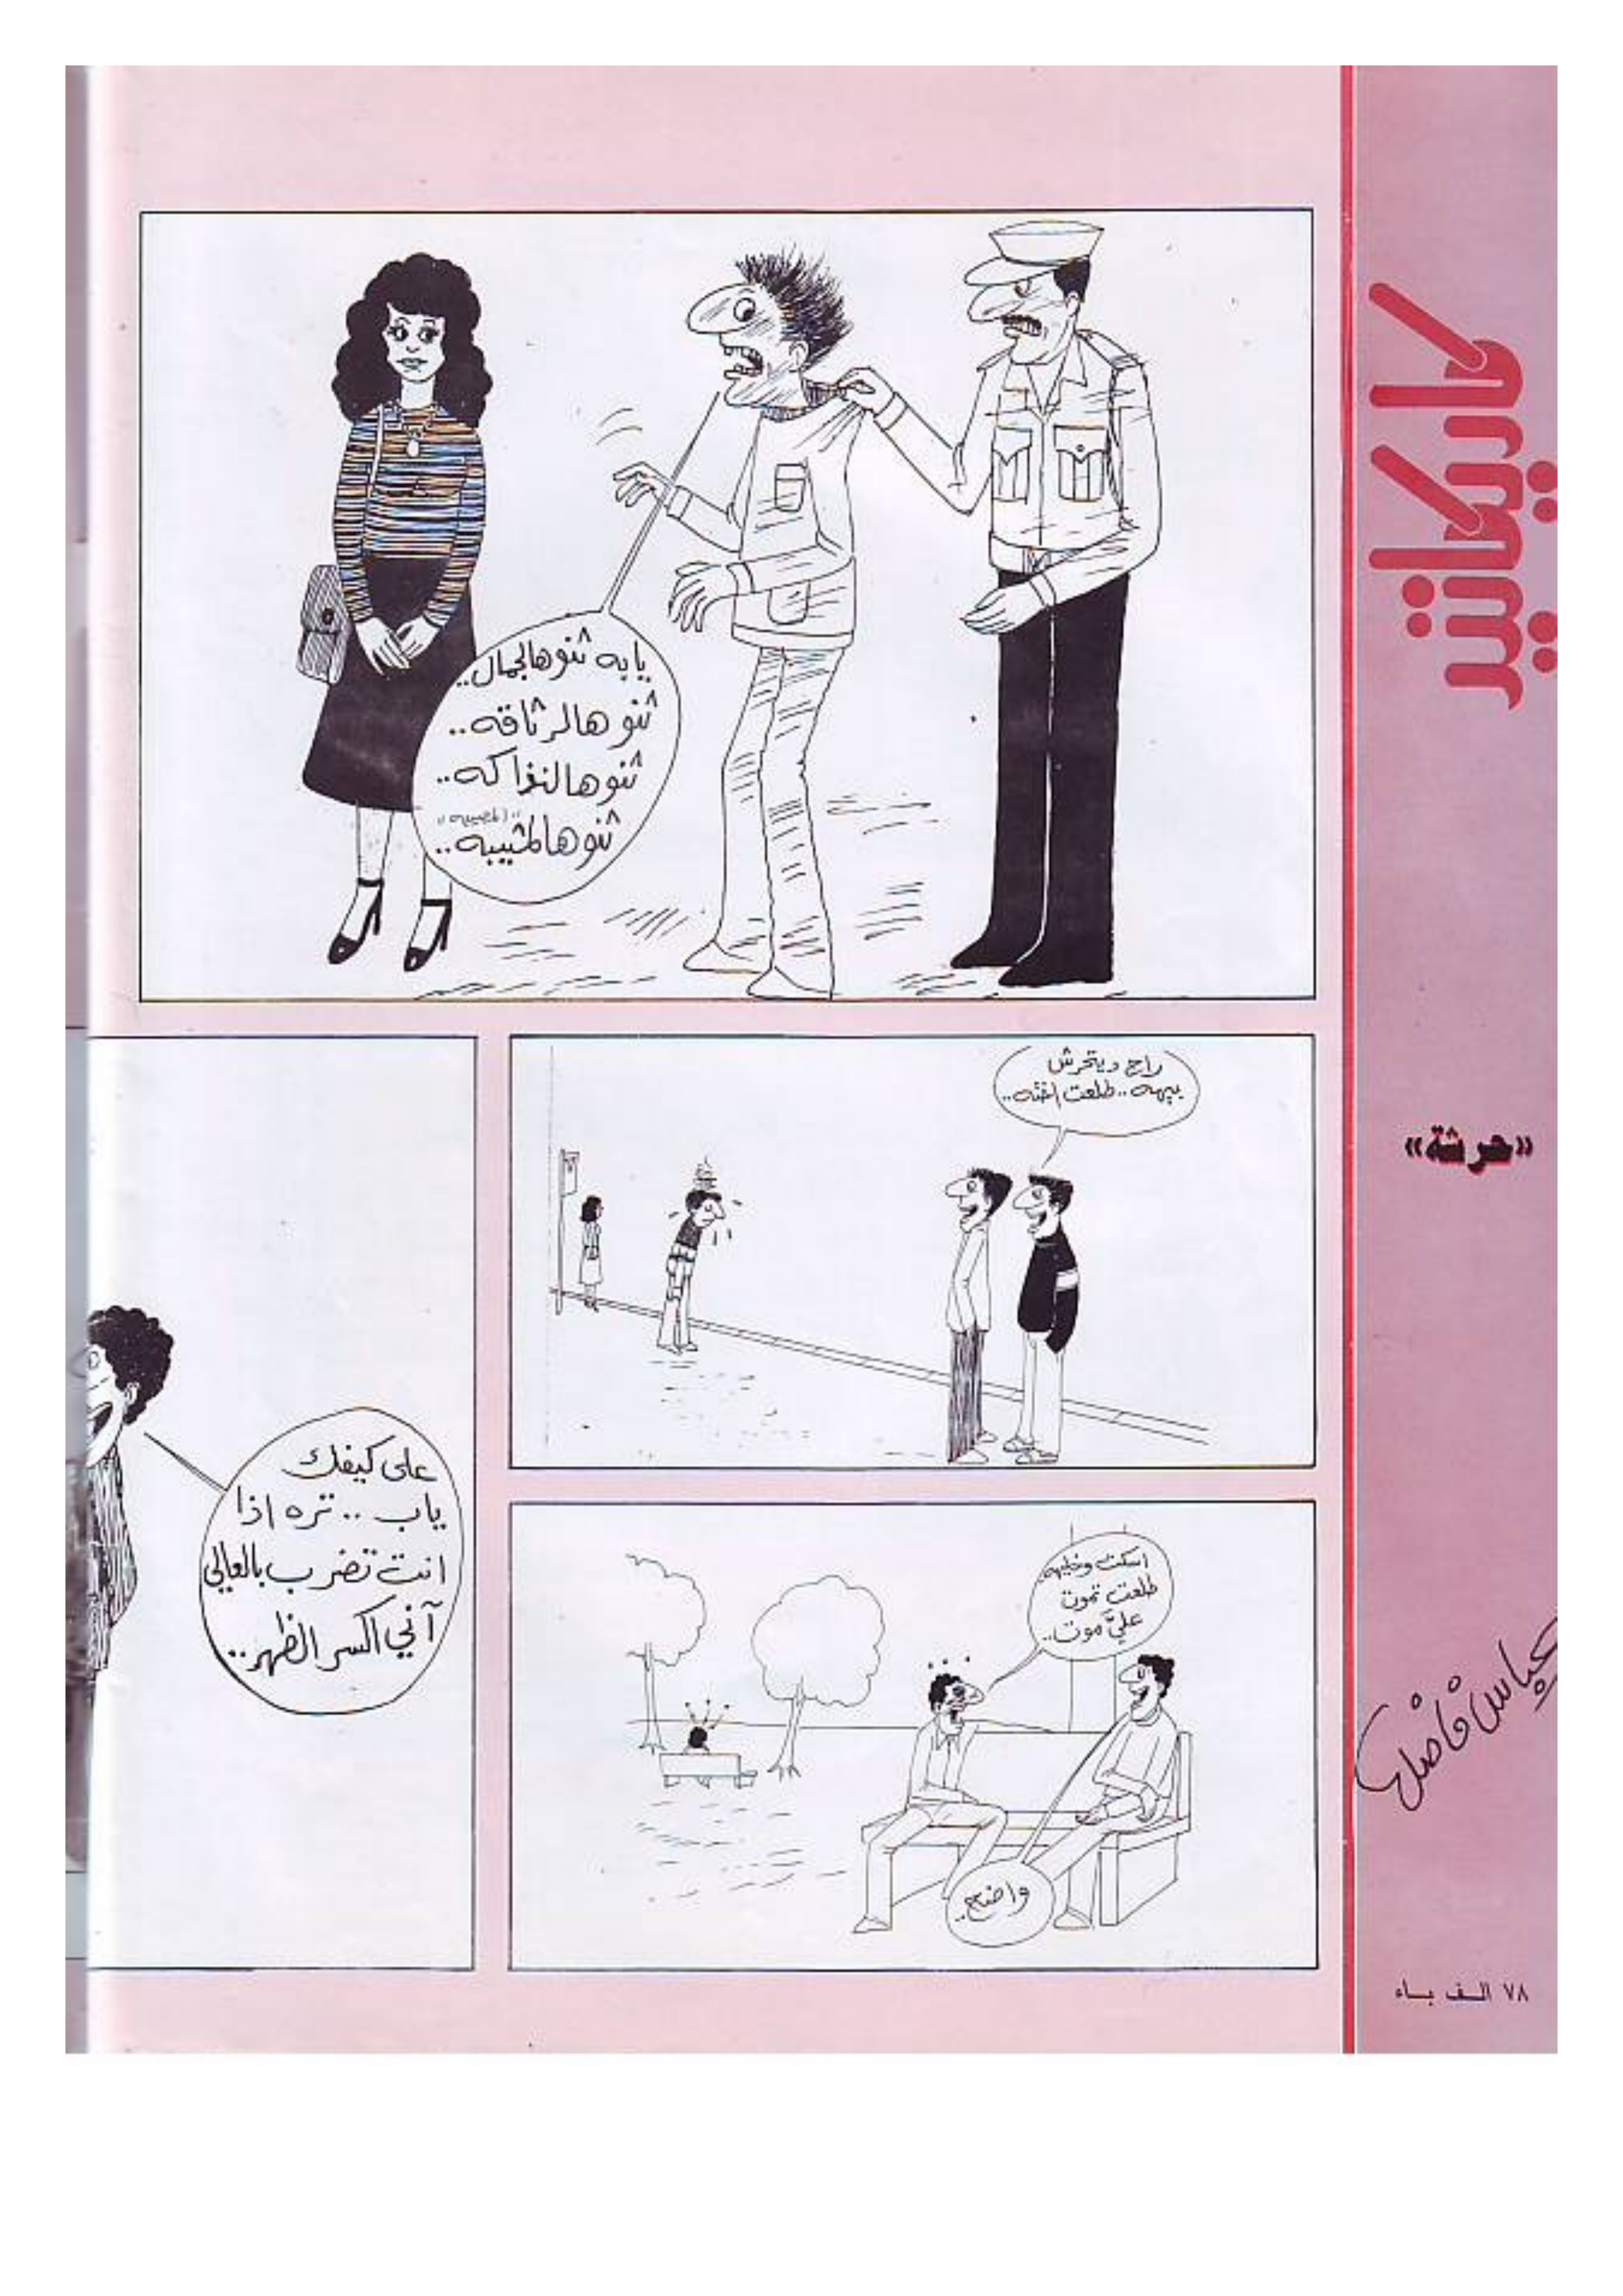 كاريكاتير
«حرشة»
عباس فاضل
٧٨ الف باء
يابه ثنو هالجمال..
ثنو هالرثاقه..
ثنو هالنذاكه..
"المصيبه"
ثنو هالمثيبه..
راح ديتحرش
بيهه.. طلعت اخته..
اسكت وخليهه
طلعت تموت
عليّ موت..
واضح..
على كيفك
ياب.. تره اذا
انت تضرب بالعالي
آني اكسر الظهر..